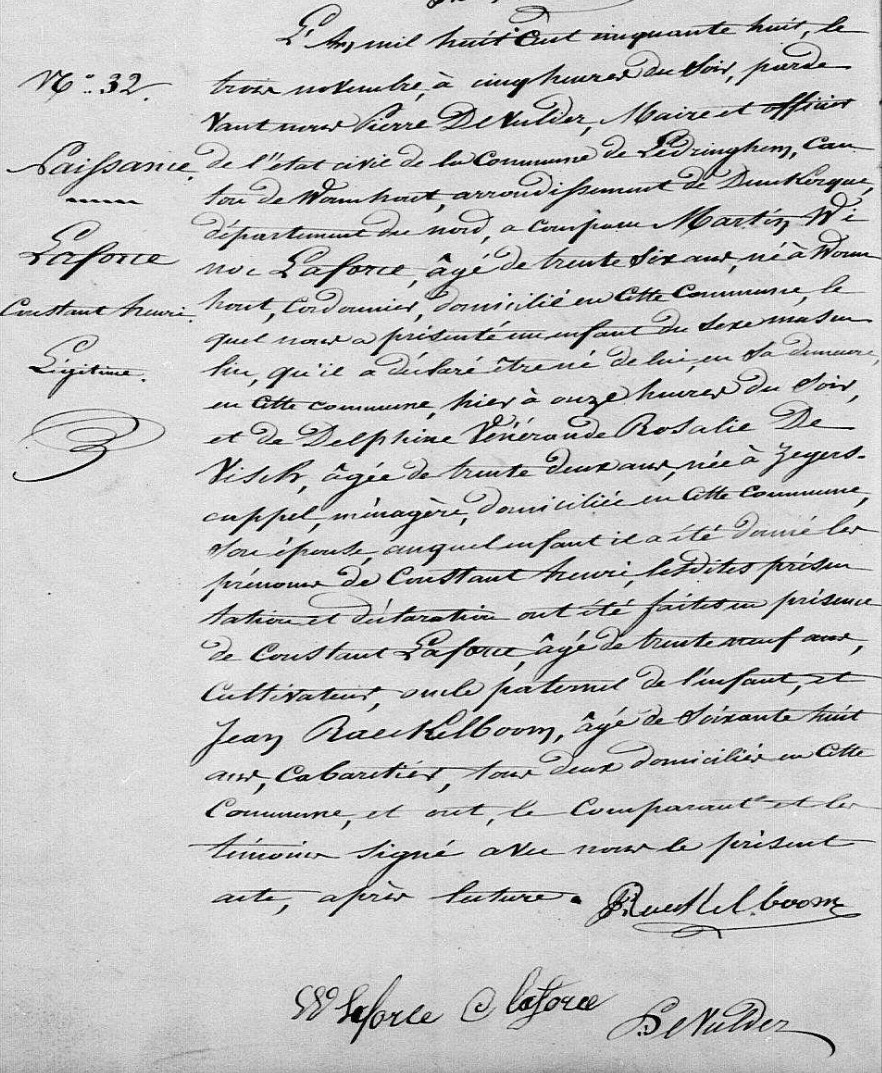 L'An mil huit cent cinquante huit, le
N.º 32.
trois novembre, à cinq heures du soir, parde
vant nous Pierre DeVulder, Maire et officier
Naissance.
de l'état civil de la Commune de Lédringhem, Can
ton de Wormhout, arrondissement de Dunkerque,
département du nord, a comparu Martin Wi
Laforce
noc Laforce, âgé de trente six ans, né à Worm
Constant henri.
hout, Cordonnier, domicilié en cette Commune, le
quel nous a présenté un enfant du sexe mascu
Légitime.
lin, qu'il a déclaré être né de lui, en sa demeure,
en cette commune, hier à onze heures du soir,
et de Delphine Vénérande Rosalie De
Visch, âgée de trente deux ans, née à Zegers-
cappel, ménagère, domiciliée en cette commune,
son épouse, auquel enfant il a été donné les
prénoms de Constant henri, lesdites présen
tation et déclaration ont été faites en présence
de Constant Laforce, âgé de trente neuf ans,
Cultivateur, oncle paternel de l'enfant, et
Jean Raeckelboom, âgé de soixante huit
ans, Cabaretier, tous deux domiciliés en cette
Commune, et ont, le Comparant et les
témoins signé avec nous le présent
acte, après lecture.
Raeckelboom
W Laforce C laforce
DeVulder